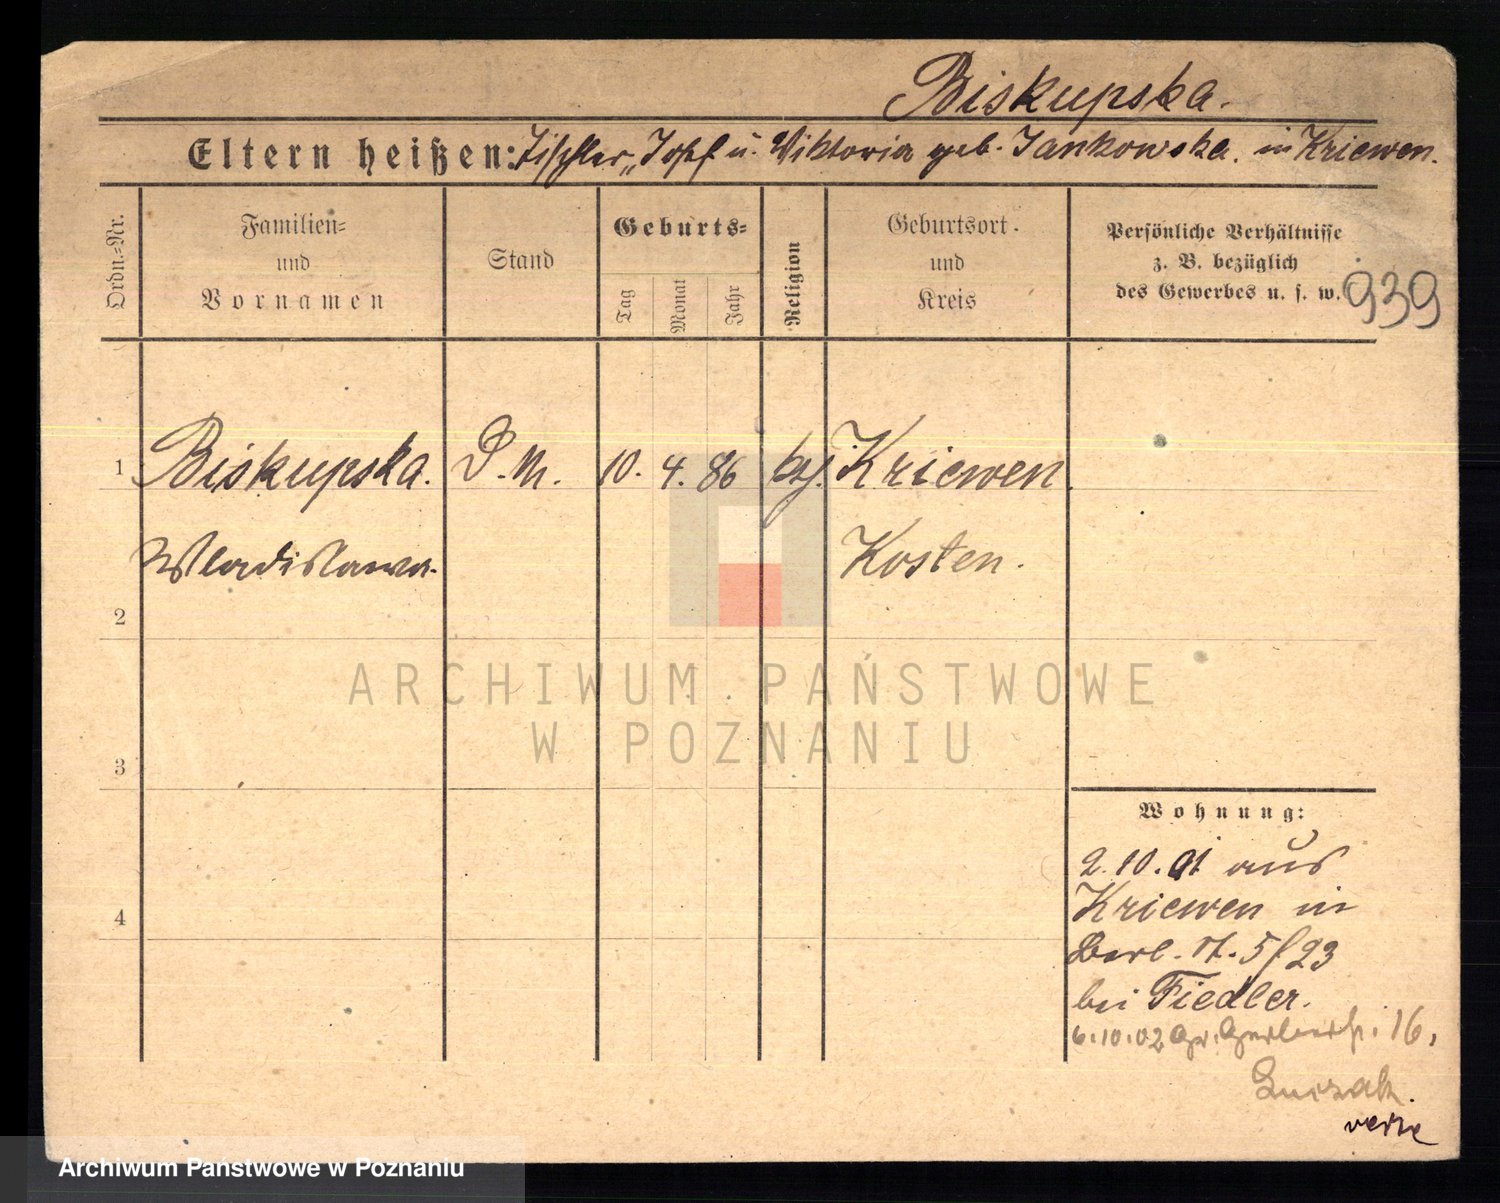 Biskupska.
Eltern heißen: Tischler Josef u. Wiktoria geb. Jankowska. in Kriewen.
Ordn.-Nr.
Familien-
und
Vornamen
Stand
Geburts-
Tag
Monat
Jahr
Religion
Geburtsort
und
Kreis
Persönliche Verhältnisse
z. B. bezüglich
des Gewerbes u. s. w.
939
1 Biskupska. D. M. 10. 4. 86 Kriewen
Wladislawa. Kosten.
2
ARCHIWUM PAŃSTWOWE
W POZNANIU
3
Wohnung:
2.10.01 aus
4 Kriewen in
Berl. st. 5 f 23
bei Fiedler.
6.10.02 Gr. Gerberstr. 16.
Archiwum Państwowe w Poznaniu